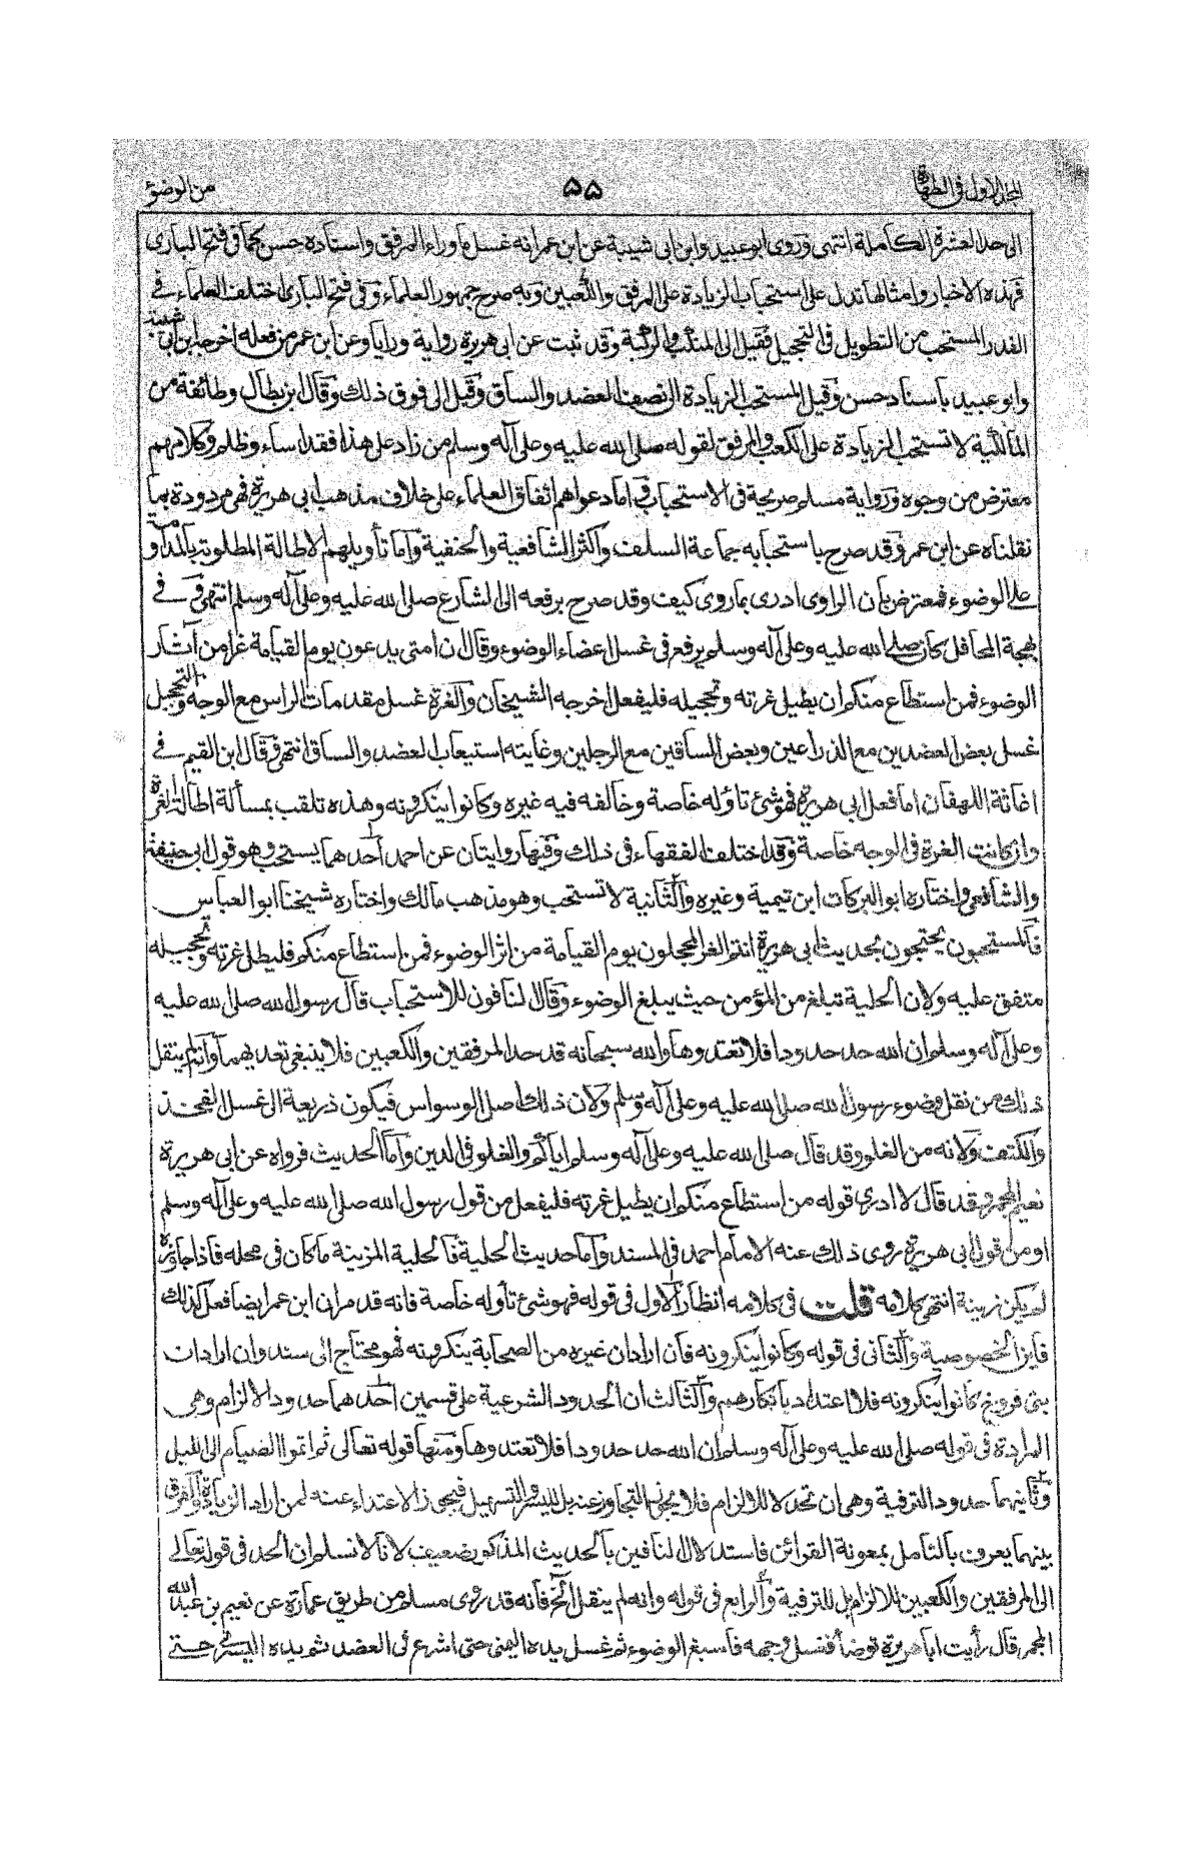 المجلد الاول فى الطهارة
۵۵
من الوضوء
الى حد العشرة الكاملة انتهى وروى ابو عبيد وابن ابى شيبة عن ابن عمر انه غسل ما وراء المرفق واسناده حسن كما فى فتح البارى
فهذه الاخبار وامثالها تدل على استحباب الزيادة على المرفق والكعبين وبه صرح جمهور العلماء وفى فتح البارى اختلف العلماء فى
القدر المستحب من التطويل فى التحجيل فقيل الى المنكب والركبة وقد ثبت عن ابى هريرة رواية ورايا وعن ابن عمر من فعله اخرجه ابن ابى شيبة
وابو عبيد باسناد حسن وقيل المستحب الزيادة الى نصف العضد والساق وقيل الى فوق ذلك وقال ابن بطال وطائفة من
المالكية لا تستحب الزيادة على الكعب والمرفق لقوله صلى الله عليه وعلى آله وسلم من زاد على هذا فقد اساء وظلم وكلامهم
معترض من وجوه ورواية مسلم صريحة فى الاستحباب واما دعواهم اتفاق العلماء على خلاف مذهب ابى هريرة فهى مردودة بما
نقلناه عن ابن عمر وقد صرح باستحبابه جماعة السلف واكثر الشافعية والحنفية واما تأويلهم الاطالة المطلوبة بالمداومة
على الوضوء فمعترض بان الراوى ادرى بما روى كيف وقد صرح برفعه الى الشارع صلى الله عليه وعلى آله وسلم انتهى وفى
بهجة المحافل كان صلى الله عليه وعلى آله وسلم يرفع فى غسل اعضاء الوضوء وقال ان امتى يدعون يوم القيامة غرا من آثار
الوضوء فمن استطاع منكم ان يطيل غرته وتحجيله فليفعل اخرجه الشيخان والغرة غسل مقدمات الراس مع الوجه والتحجيل
غسل بعض العضدين مع الذراعين وبعض الساقين مع الرجلين وغايته استيعاب العضد والساق انتهى وقال ابن القيم فى
اغاثة اللهفان اما فعل ابى هريرة فهو شئ تاوله خاصة وخالفه فيه غيره وكانوا ينكرونه وهذه تلقب بمسألة اطالة الغرة
وان كانت الغرة فى الوجه خاصة وقد اختلف الفقهاء فى ذلك وفيها روايتان عن احمد احدهما يستحب وهو قول ابى حنيفة
والشافعى واختاره ابو البركات ابن تيمية وغيره والثانية لا تستحب وهو مذهب مالك واختاره شيخنا ابو العباس
فالمستحبون يحتجون بحديث ابى هريرة انتم الغر المحجلون يوم القيامة من اثر الوضوء فمن استطاع منكم فليطل غرته وتحجيله
متفق عليه ولان الحلية تبلغ من المؤمن حيث يبلغ الوضوء وقال النافون للاستحباب قال رسول الله صلى الله عليه
وعلى آله وسلم ان الله حد حدودا فلا تعتدوها والله سبحانه قد حد المرفقين والكعبين فلا ينبغى تعديهما وانه لم ينقل
ذلك من نقل وضوء رسول الله صلى الله عليه وعلى آله وسلم ولان ذلك اصل الوسواس فيكون ذريعة الى غسل الفخذ
والكتف ولانه من الغلو وقد قال صلى الله عليه وعلى آله وسلم اياكم والغلو فى الدين واما الحديث فرواه عن ابى هريرة
نعيم المجمر وقد قال لا ادرى قوله من استطاع منكم ان يطيل غرته فليفعل من قول رسول الله صلى الله عليه وعلى آله وسلم
او من قول ابى هريرة روى ذلك عنه الامام احمد فى المسند واما حديث الحلية فالحلية المزينة ما كان فى محله فاذا جاوزه
لم يكن زينة انتهى كلامه قلت فى كلامه انظار الاول فى قوله فهو شئ تأوله خاصة فانه قد مر ان ابن عمر ايضا فعل كذلك
فاين الخصوصية والثانى فى قوله وكانوا ينكرونه فان اراد ان غيره من الصحابة ينكرونه فهو محتاج الى سند وان اراد ان
بنى فروخ كانوا ينكرونه فلا اعتداد بانكارهم والثالث ان الحدود الشرعية على قسمين احدهما حدود الالزام وهى
المرادة فى قوله صلى الله عليه وعلى آله وسلم ان الله حد حدودا فلا تعتدوها ومنها قوله تعالى ثم اتموا الصيام الى الليل
وثانيهما حدود الترفية وهى ان تحد لا للالزام فلا يجوز التجاوز عنه بل لليسر والتسهيل فيجوز الاعتداء عنه لمن اراد الزيادة والفرق
بينهما يعرف بالتامل بمعونة القرائن فاستدلال النافين بالحديث المذكور ضعيف لانا لا نسلم ان الحد فى قوله تعالى
الى المرفقين والكعبين للالزام بل للترفية والرابع فى قوله وانه لم ينقل الخ فانه قد روى مسلم من طريق عمارة عن نعيم بن عبد الله
المجمر قال رأيت ابا هريرة توضأ فغسل وجهه فاسبغ الوضوء ثم غسل يده اليمنى حتى اشرع فى العضد ثم يده اليسرى حتى